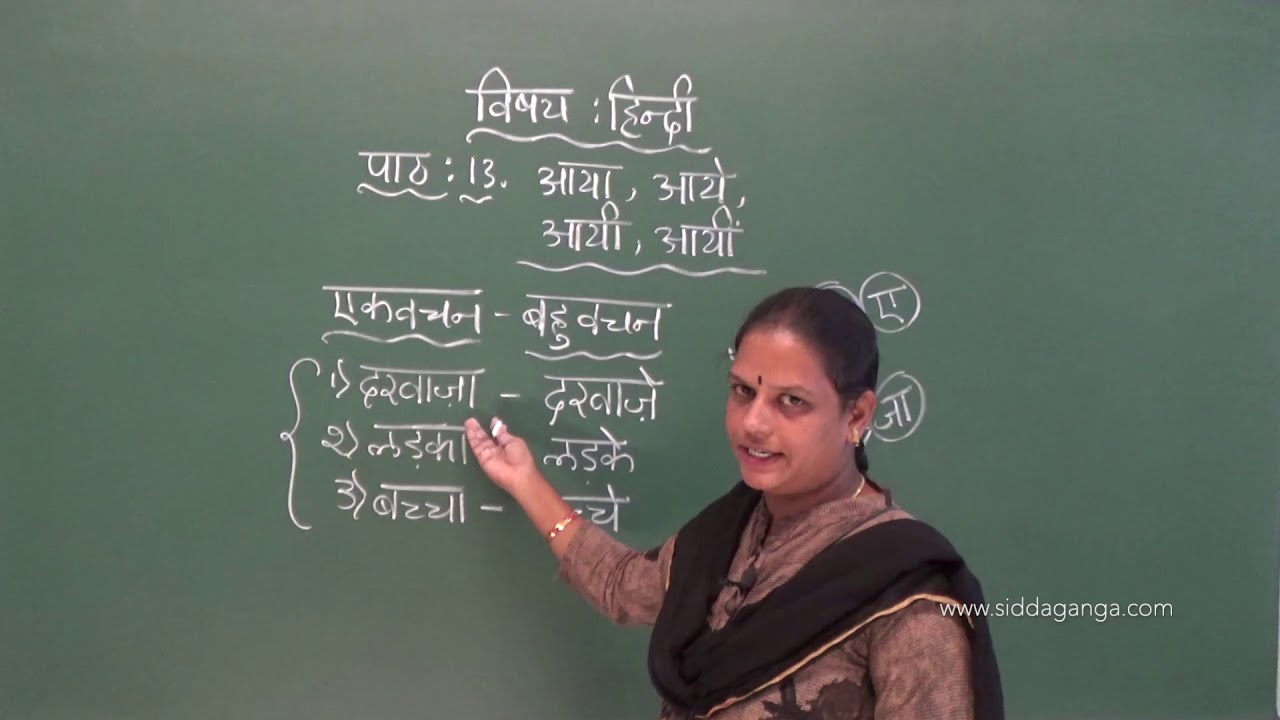 विषय : हिन्दी
पाठ : 13. आया, आये,
आयी, आयीं
एकवचन - बहुवचन
ए
१) दरवाज़ा - दरवाज़े
जा
२) लड़का लड़के
३) बच्चा - च्चे
www.siddaganga.com